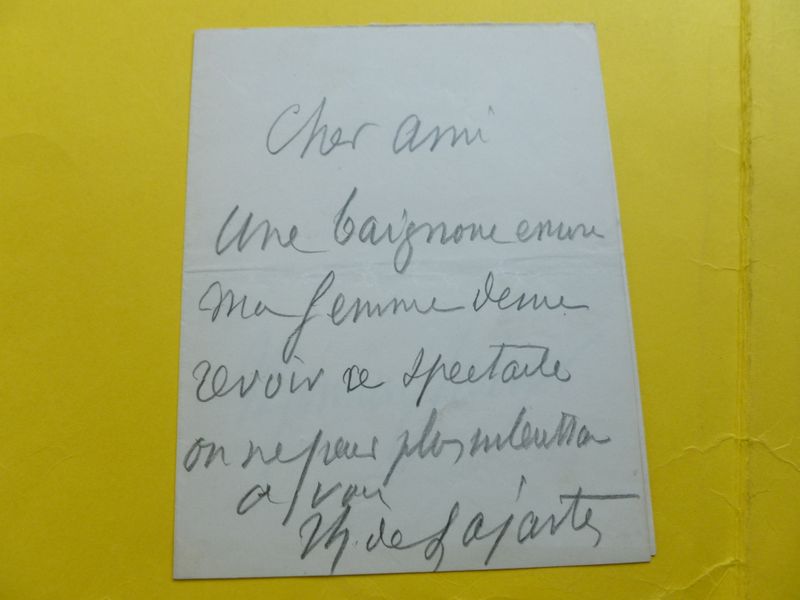 Cher ami
Une baignoire encore
Ma femme desire
revoir ce spectacle
on ne peut plus
a voir
Th. de Lajarte